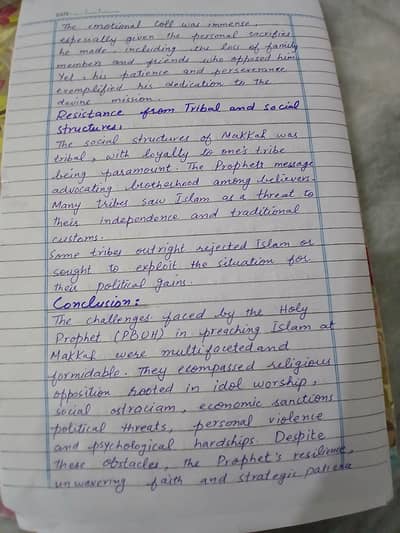 DATE:
The emotional toll was immense,
especially given the personal sacrifies
he made, including the loss of family
members and friends who opposed him
Yet, his patience and perseverance
exemplified his dedication to the
devine mission.
Resistance from Tribal and social
structures,
The social structures of Makkah was
tribal, with loyalty to one's tribe
being paramount. The Prophets message
advocating brotherhood among believers.
Many tribes saw Islam as a threat to
their independence and traditional
customs.
Some tribes outright rejected Islam or
sought to exploit the situation for
their political gains.
Conclusion:
The challenges faced by the Holy
Prophet (PBUH) in preaching Islam at
Makkah were multifaceted and
formidable. They ecompassed religious
opposition rooted in idol worship,
social ostraciam, economic sanctions
political threats, personal violence
and psychological hardships. Despite
these obstacles, the Prophet's resilience,
unwavering faith and strategic